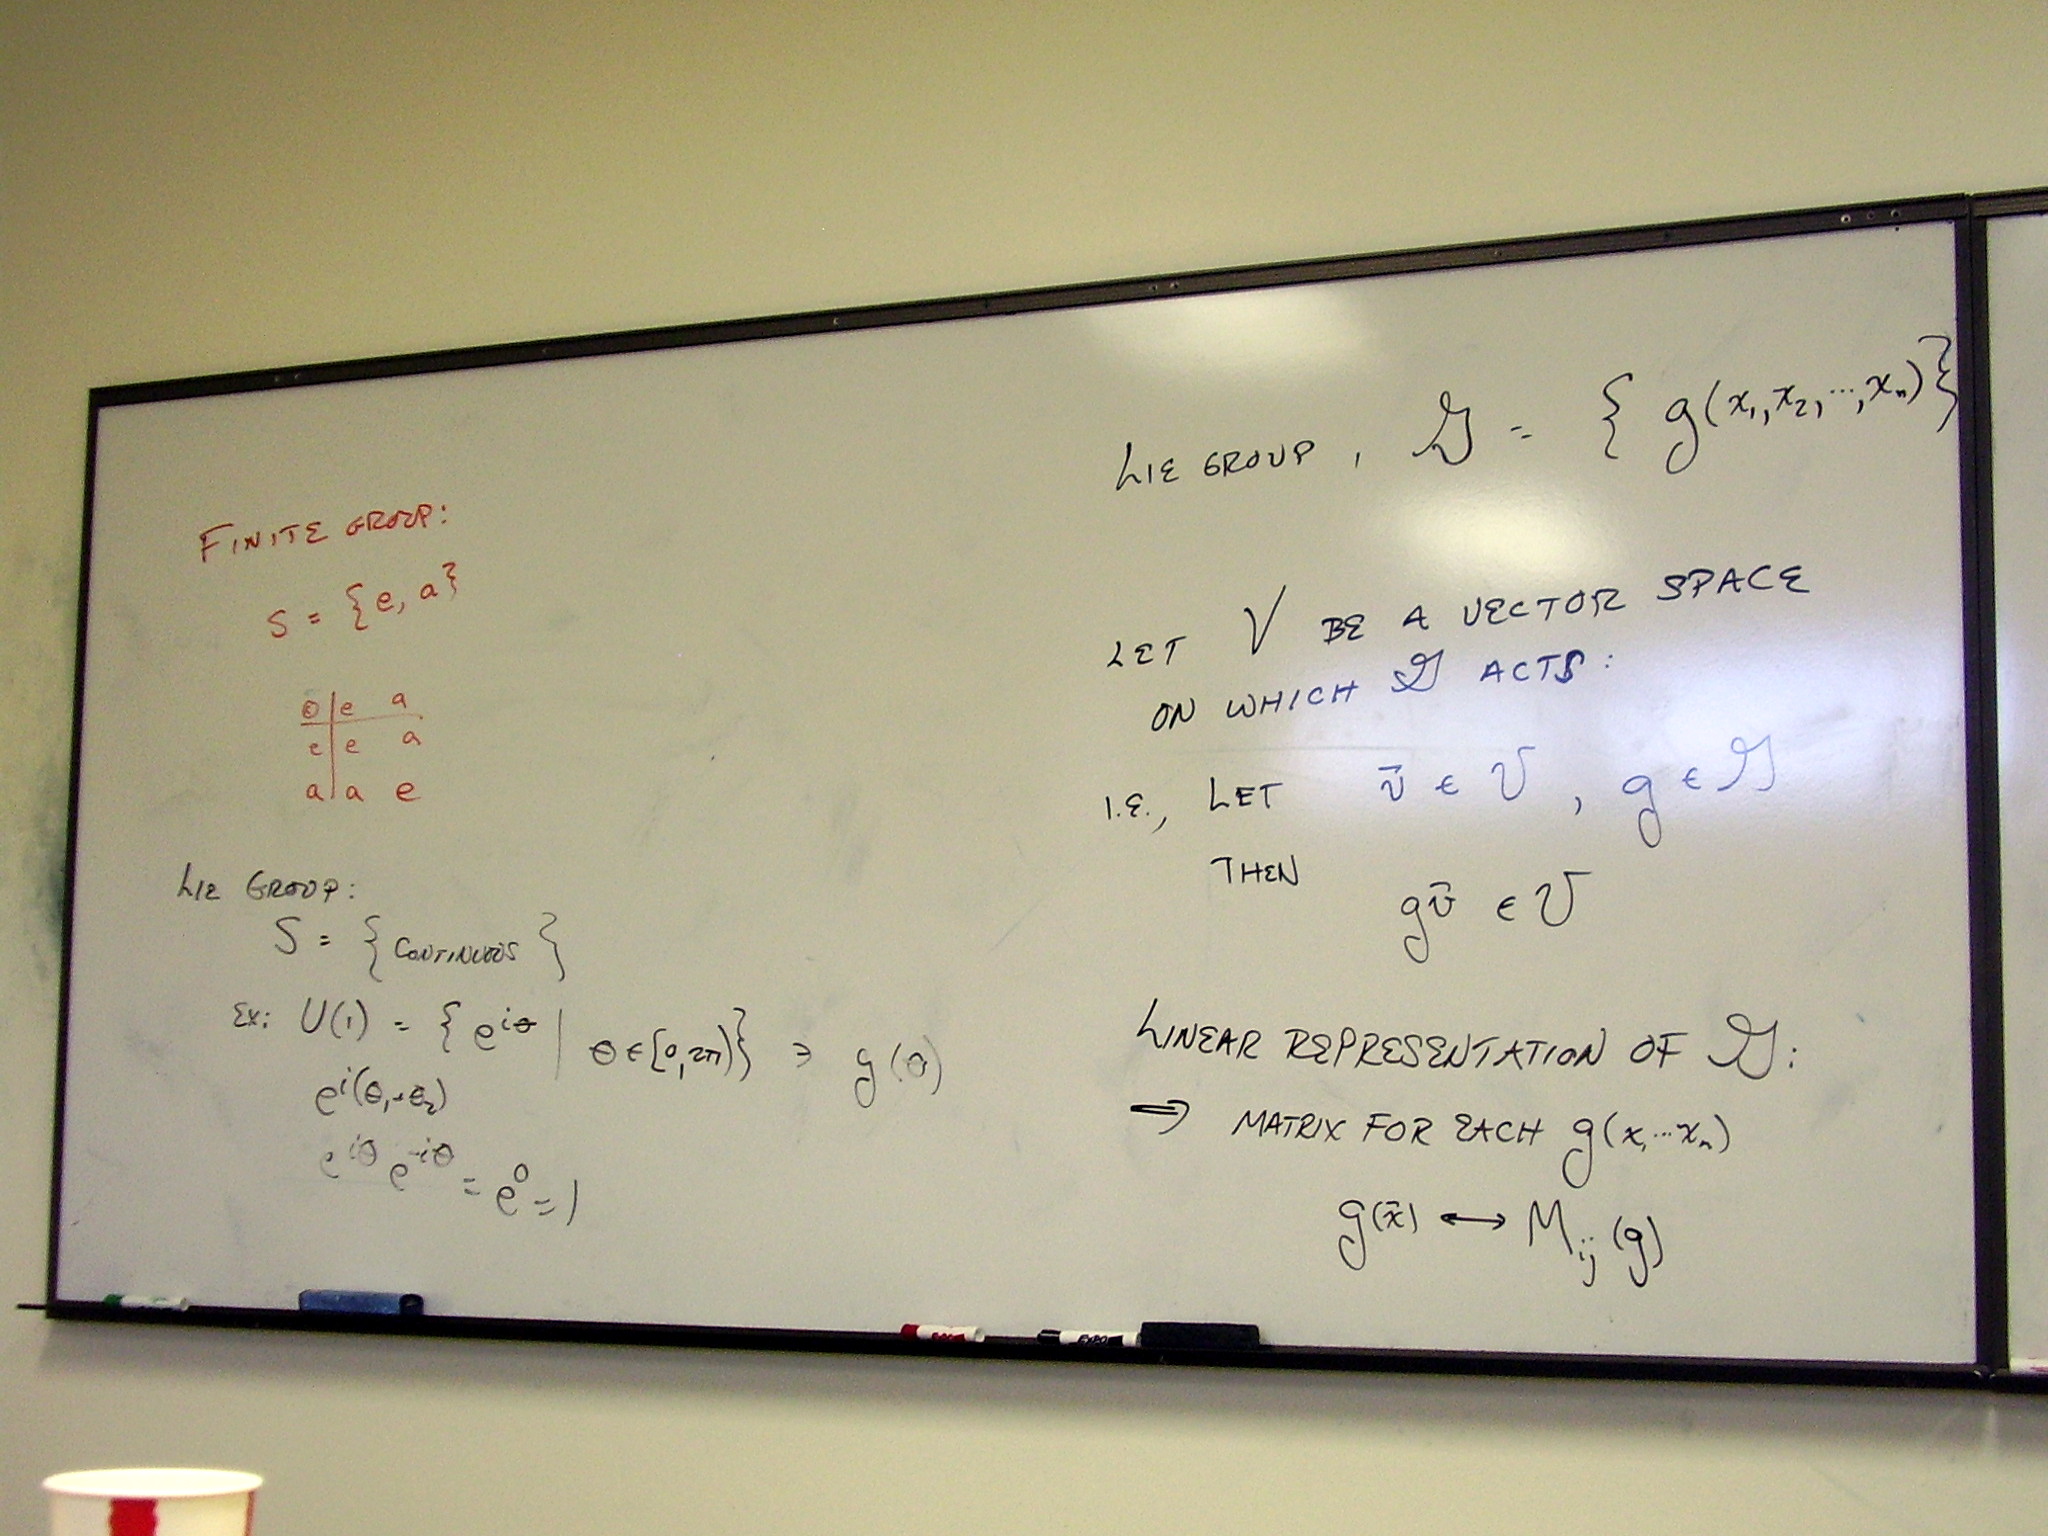 FINITE GROUP:
S = {e, a}
⊙ | e a
e | e a
a | a e
LIE GROUP:
S = { CONTINUOUS }
EX: U(1) = { e^{iθ} | θ ∈ [0, 2π) } ∋ g(θ)
e^{i(θ₁+θ₂)}
e^{iθ} e^{-iθ} = e^0 = 1
LIE GROUP, 𝒢 = { g(x₁, x₂, ..., xₙ) }
LET V BE A VECTOR SPACE
ON WHICH 𝒢 ACTS:
I.E., LET v⃗ ∈ V, g ∈ 𝒢
THEN
g v⃗ ∈ V
LINEAR REPRESENTATION OF 𝒢:
⇒ MATRIX FOR EACH g(x, ... xₙ)
g(x⃗) ↔ M_{ij}(g)
EXPO